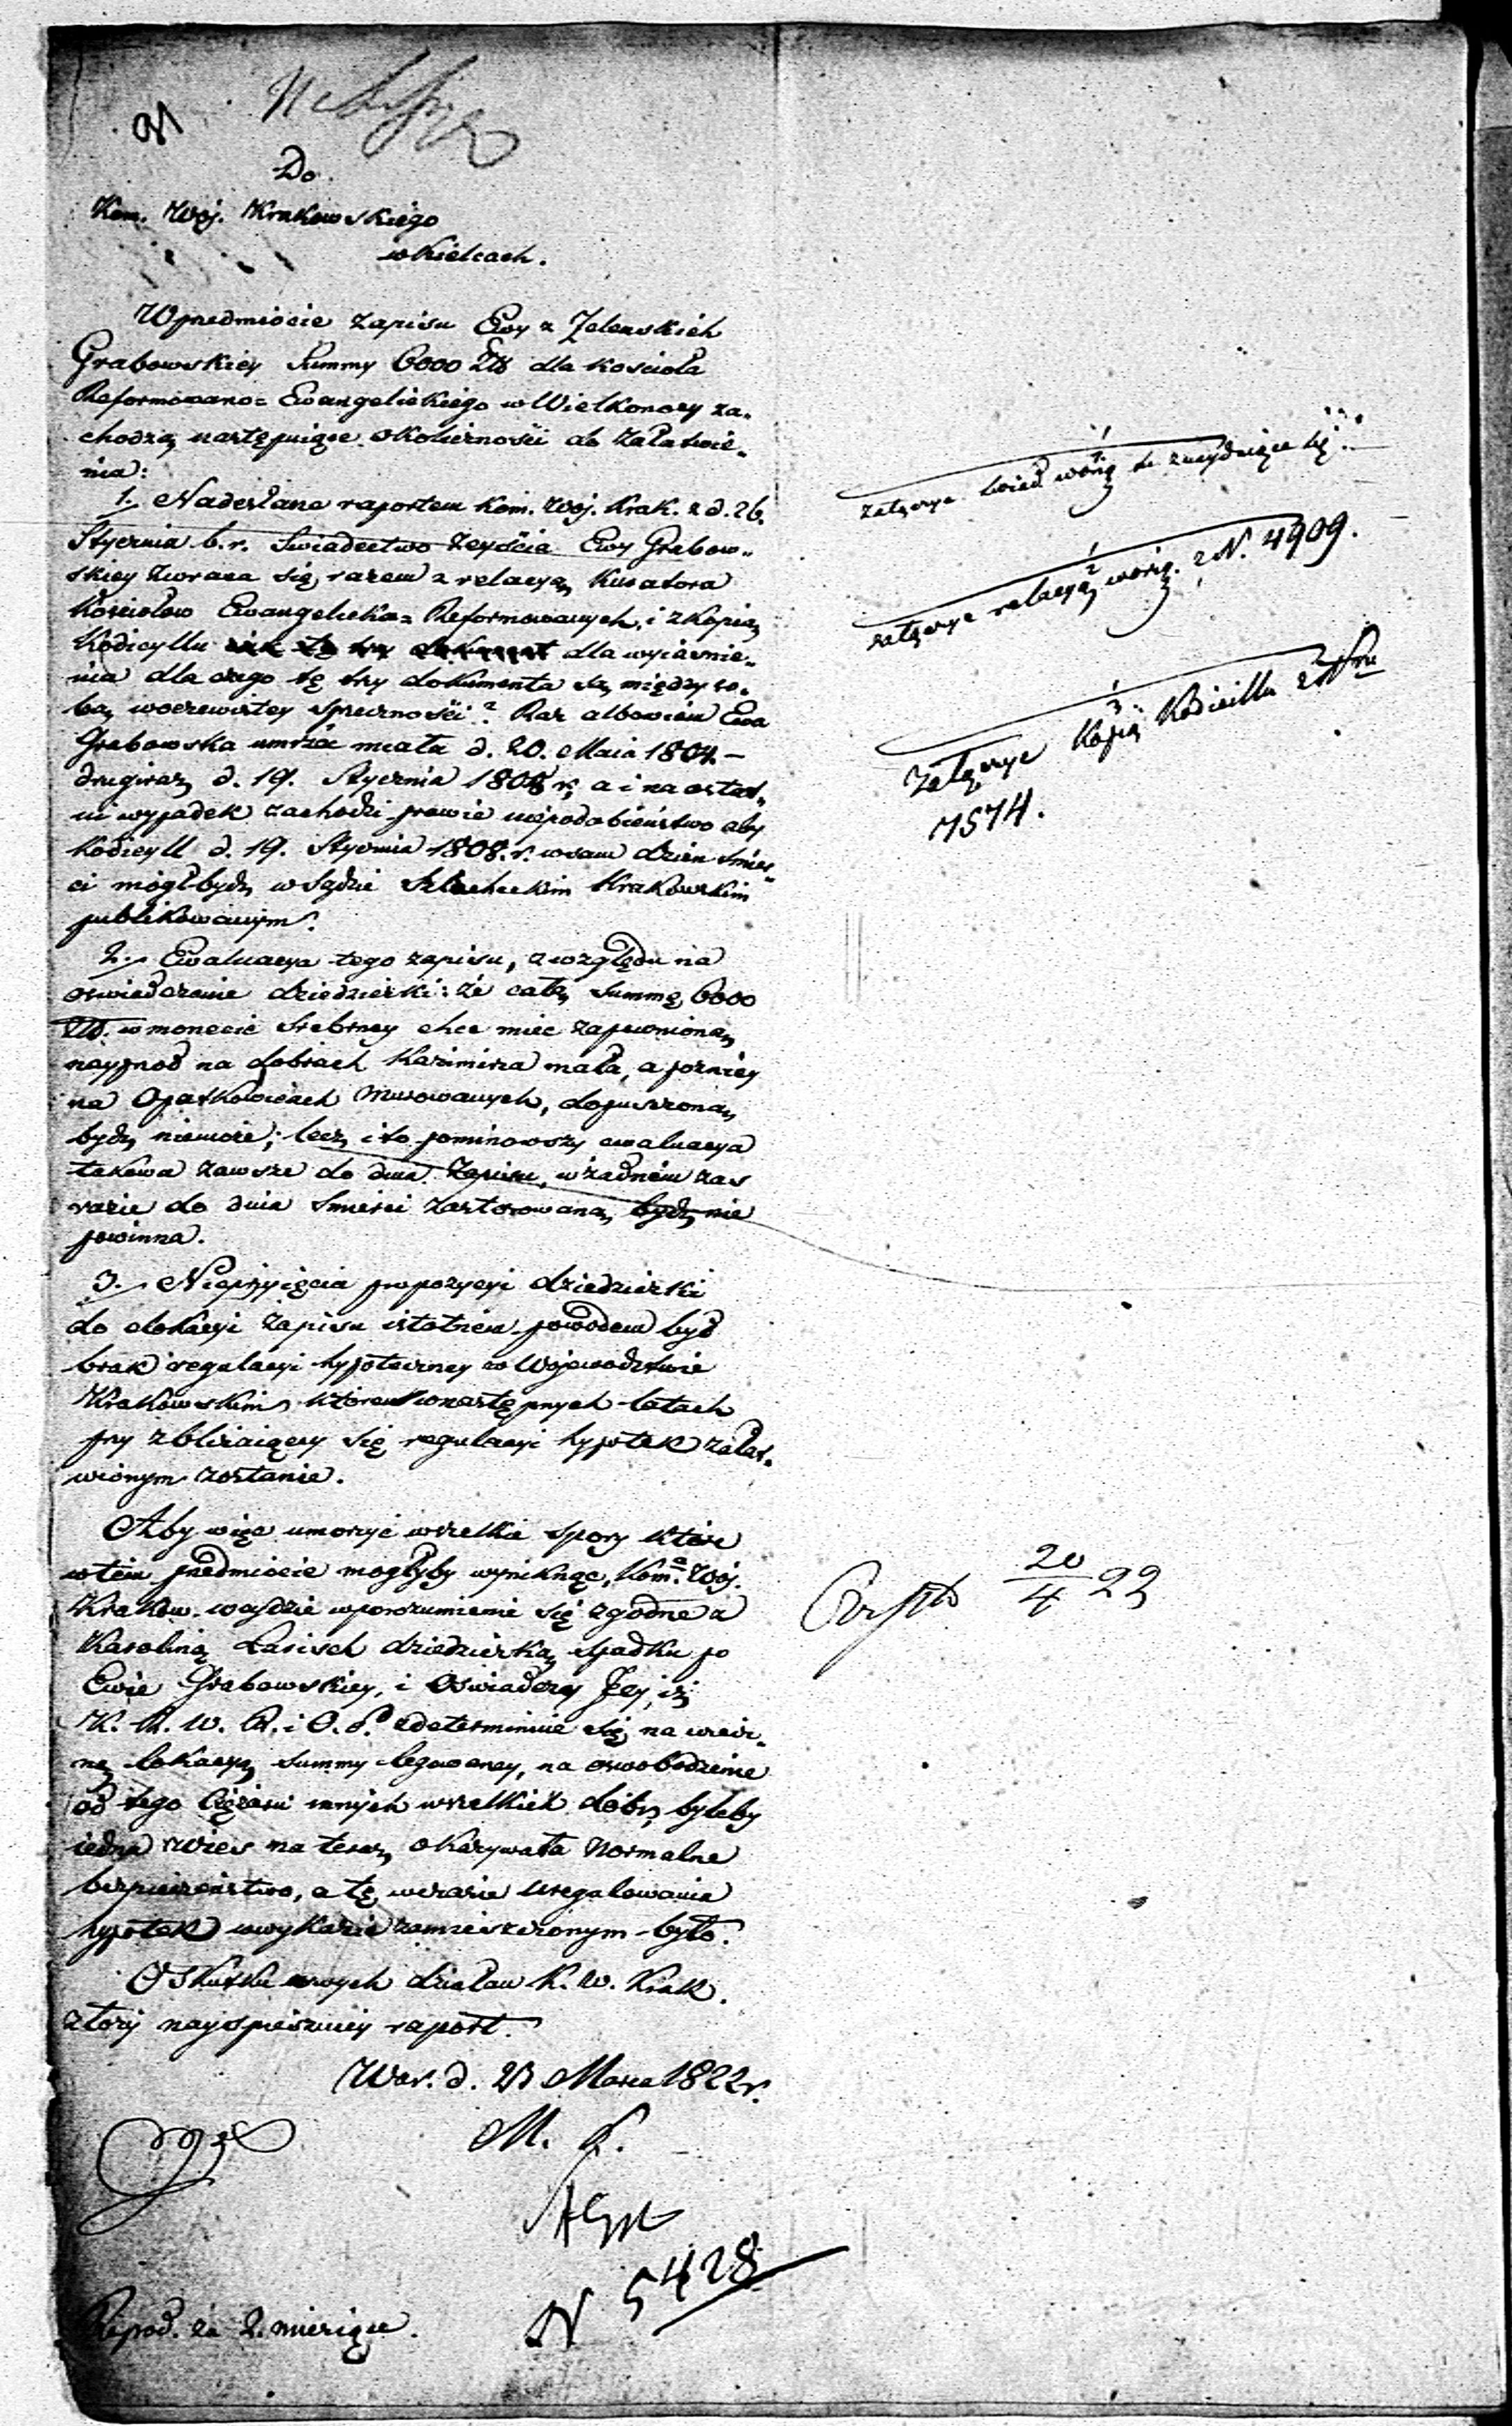 Do
Kom. Woj. Krakowskiego
w Kielcach.
W przedmiocie zapisu Ewy z Zelenskich
Grabowskiey Summy 6000 Złt dla kościoła
Reformowano= Ewangelickiego w Wielkonocy za-
chodzą następuiące okoliczności do załatwie-
nia:
1. Nadesłane raportem Kom. Woj. Krak. z d. 26.
Stycznia b. r. Swiadectwo Zeyścia Ewy Grabow-
skiey zwraca się razem z relacyą Kuratora
Kościołow Ewangelicko= Reformowanych, i z kopią
Kodicyllu dla wyiaśnie-
nia dla czego te trzy dokumenta są między so-
bą w oczewistey sprzeczności? Raz albowiem Ewa
Grabowska umrzeć miała d. 20. Maia 1804. –
drugiraz d. 19. Stycznia 1808 r, a i na ostat-
ni wypadek zachodzi prawie niepodobieństwo aby
Kodicyll d. 19. Stycznia 1808. r. w sam dzien smier-
ci mógł bydź w Sądzie Szlacheckim Krakowskim
publikowanym.
2. Ewaluacya tego zapisu, z względu na
oswiadczenie dziedziczki: że całą Summę 6000
Złt. w monecie srebrney chce miec zapewnioną
nayprzod na dobrach Kazimirza mała, a pozniey
na Opatkowicach Murowanych, dopuszczoną
bydź niemoże; lecz i to pominowszy ewaluacya
takowa zawsze do dnia Zapisu, w żadném zas
razie do dnia Smierci zastosowaną bydź nie
powinna.
3. Nieprzyięcia propozycyi dziedziczki
do elokacyi zapisu istotném powodem był
brak regulacyi hypoteczney w Wojewodztwie
Krakowskim, którem w następnych latach
przy zbliżaiącey się regulacyi hypotek załat-
wionym zostanie.
Aby więc umorzyć wszelkie spory które
w tém przedmiocie mogłyby wyniknąć, Komᵃ. Woj.
Krakow. weydzie w porozumienie się zgodne z
Karoliną Larisch dziedziczką spadku po
Ewie Grabowskiey, i Oświadczy Jey, iż
K. R. W. R. i O. P. zdeterminuie się na wiecz-
ną lokacyą summy legowaney, na oswobodzenie
od tego Ciężaru innych wszelkich dobr, byleby
iedna wies na teraz okazywała Normalne
bezpieczeństwo, a tę w czasie uregulowania
hypotek w wykazie zamieszczonym było.
O Skutku nowych działań K. W. Krak.
złoży nayspieszniey raport.
War. d. 23 Marca 1822 r.
M. P.
N 5428
Repod. za 2. miesiące.
1
załączyc swiad. w oryg.
2
załączyc relacyą w oryg. z N. 4909.
3
Załączyc Kopią Kodicillu z Nru
7574.
20/4 22